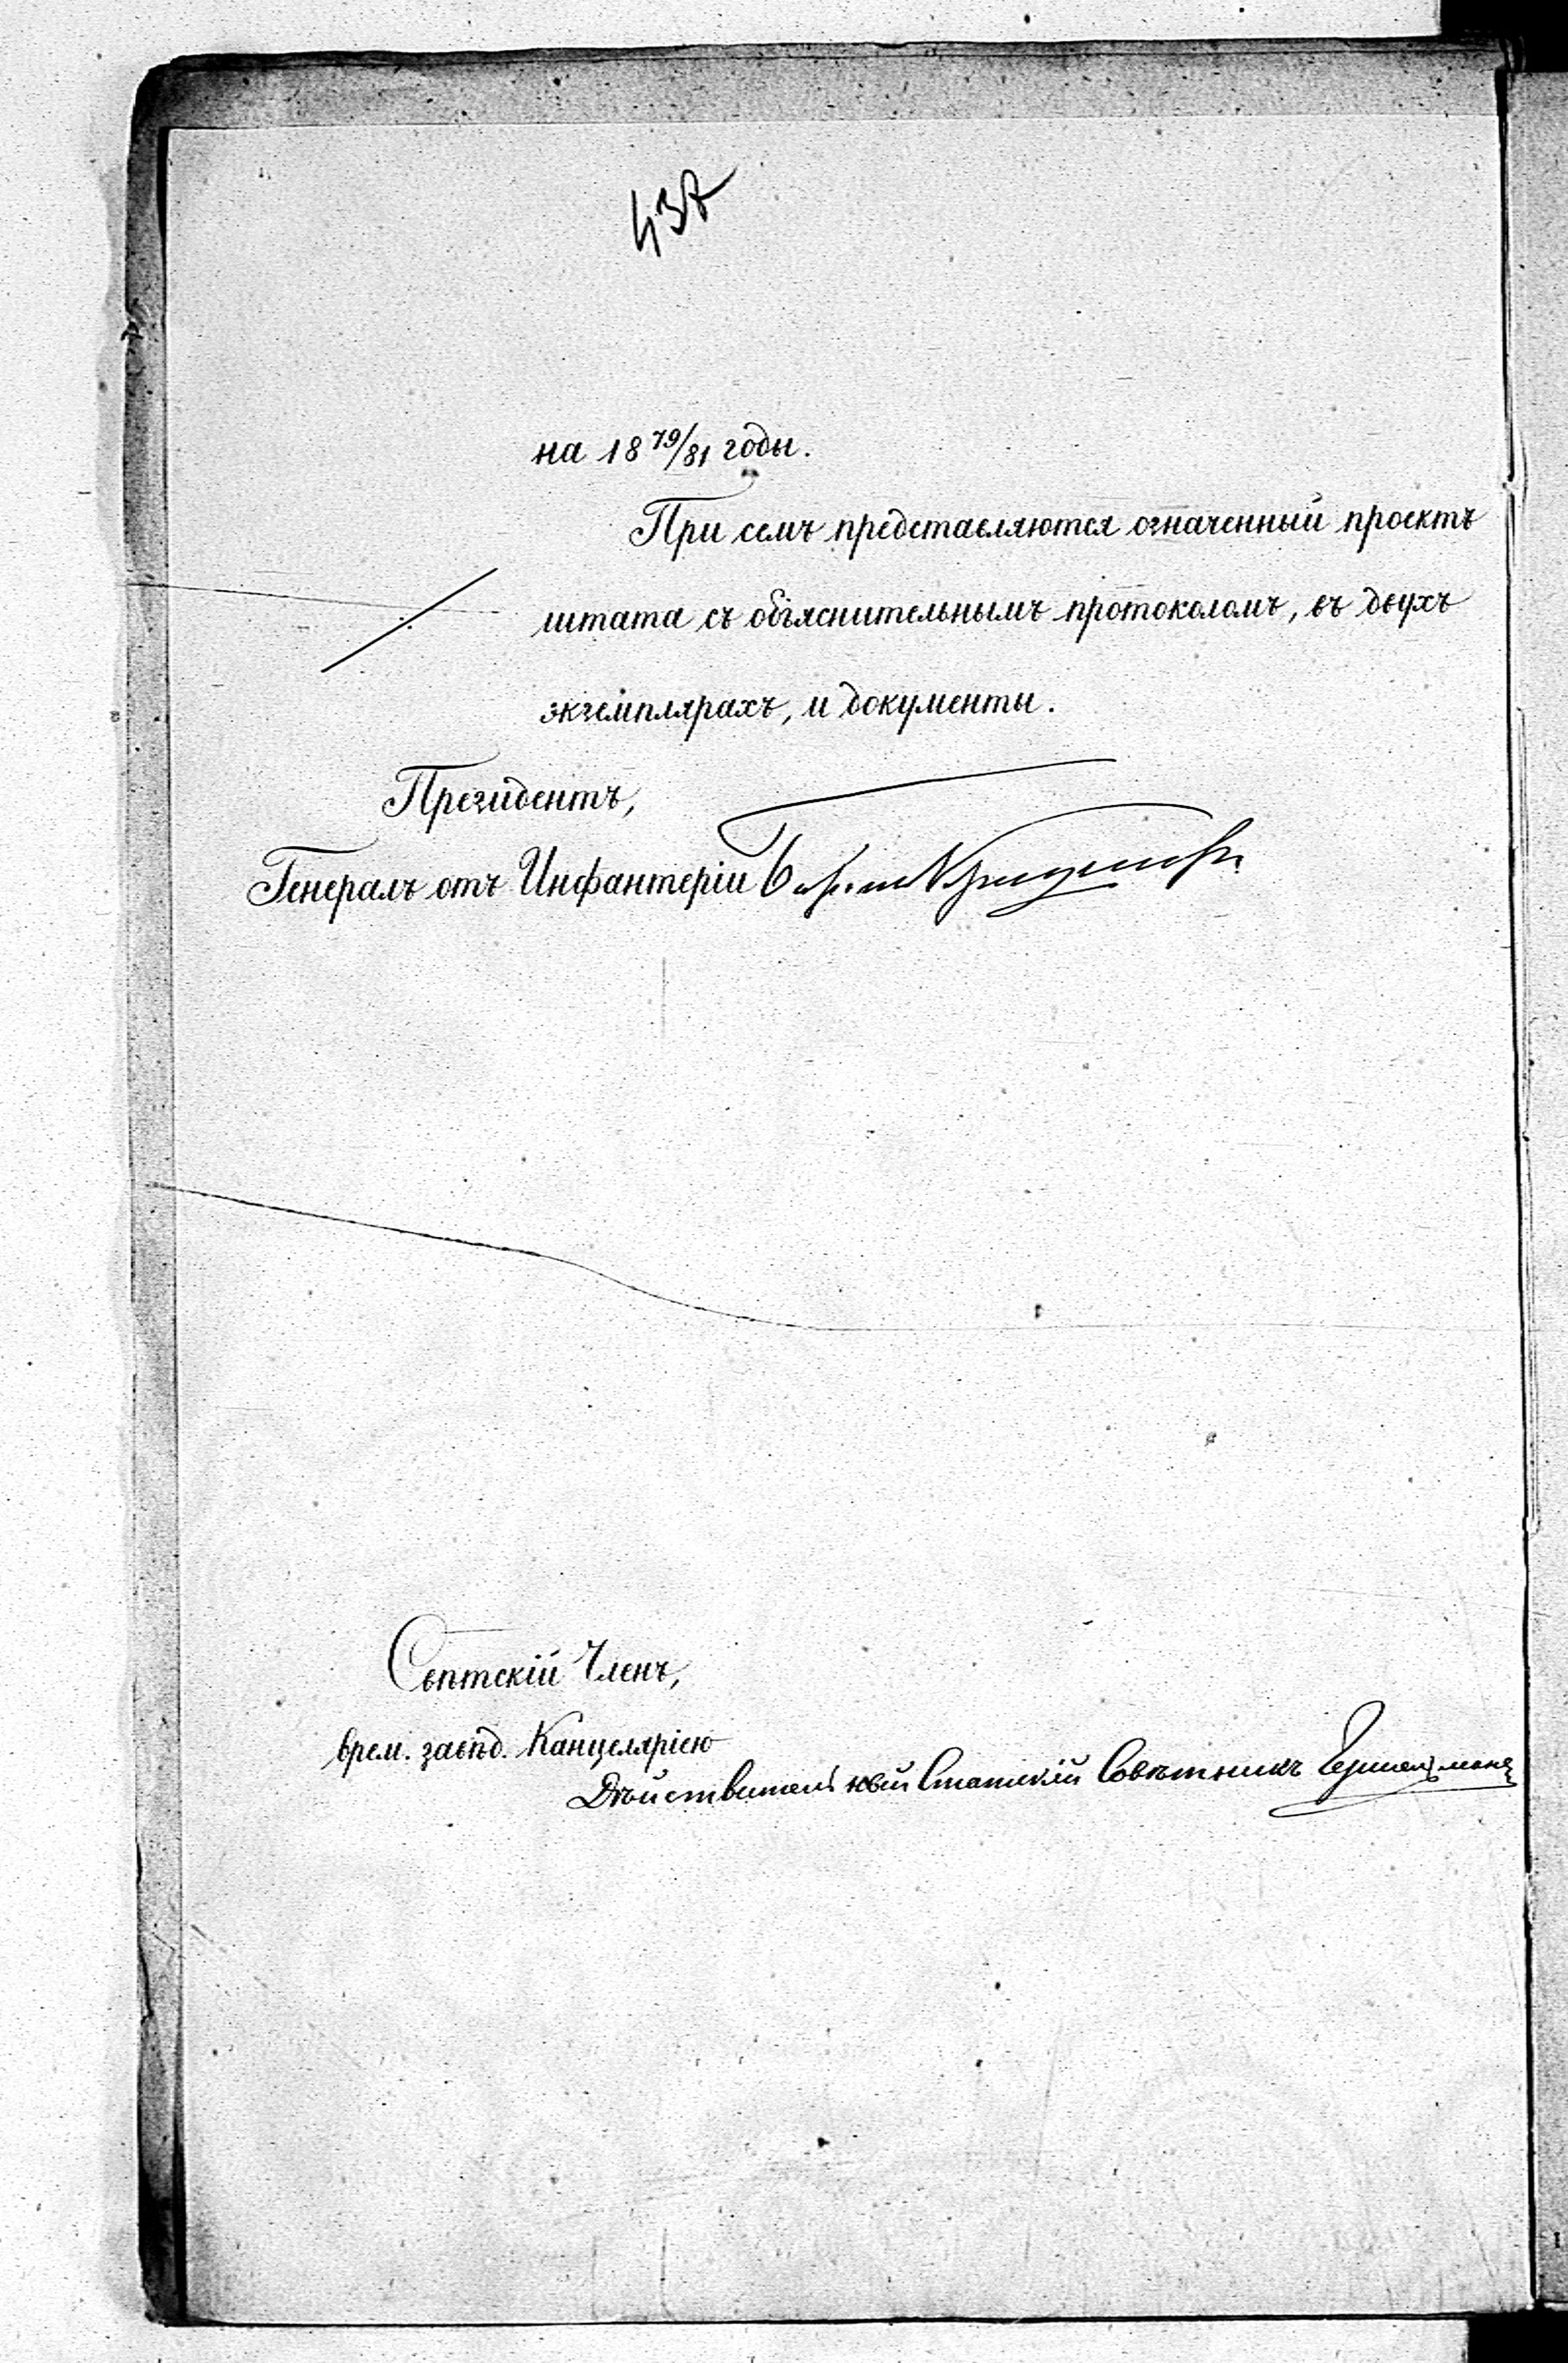 437
на 18 79/81 годы.
При семъ представляются означенный проектъ
штата съ объяснительнымъ протоколомъ, въ двухъ
экземплярахъ, и документы.
Президентъ,
Генералъ отъ Инфантеріи Баронъ
Свѣтскій Членъ,
врем. завѣд. Канцеляріею
Дѣйствительный Статскій Совѣтникъ